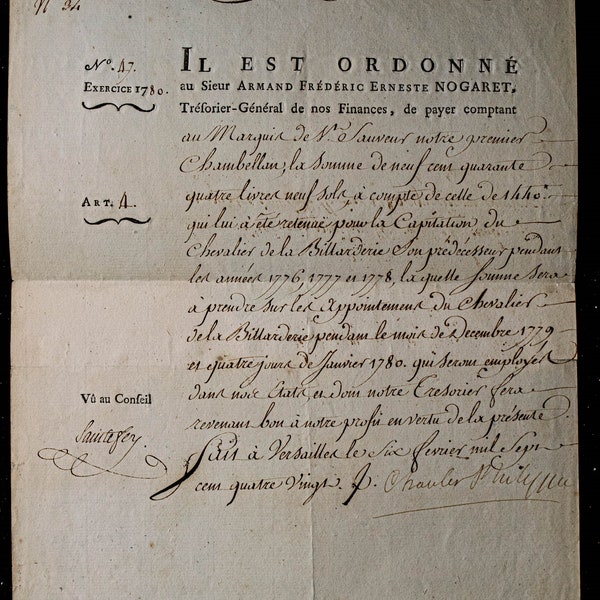 N° 34
N.° 47.
EXERCICE 1780.
IL EST ORDONNÉ
au Sieur ARMAND FRÉDÉRIC ERNESTE NOGARET,
Trésorier-Général de nos Finances, de payer comptant
au Marquis de St. Sauveur notre premier
Chambellan, la Somme de neuf cent quarante
quatre livres neuf sols, à compte de celle de 1440.
ART. 4.
qui lui a été retenue pour la Capitation du
Chevalier de la Billarderie Son prédécesseur pendant
les années 1776, 1777 et 1778, la quelle Somme sera
à prendre sur les Appointements du Chevalier
de la Billarderie pendant le mois de Decembre 1779
et quatre jours de Janvier 1780. qui seront employés
dans nos Etats, et dont notre Tresorier fera
Vû au Conseil
revenant bon à notre profit en vertu de la présente
Saintefoy
Fait à Versailles le Six fevrier mil Sept
cent quatre Vingt. Charles Philippe